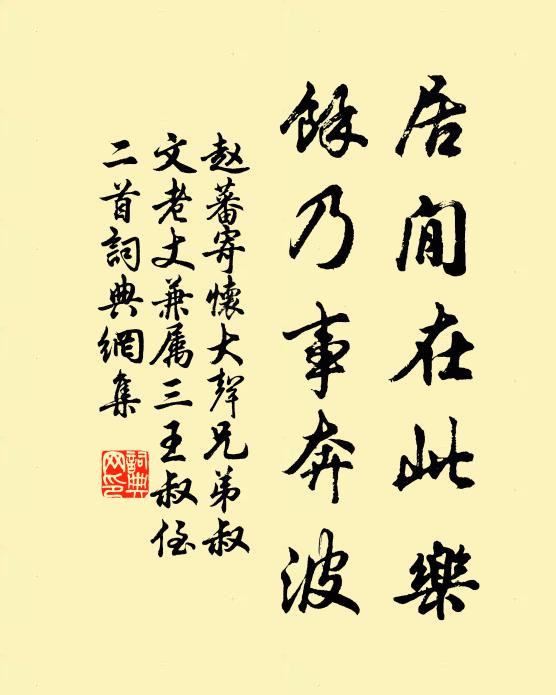 居闲在此樂
餘乃事奔波
赵蕃寄懷大聲兄弟叔
文老丈兼属三王叔侄
二首詞典網集
詞典网印